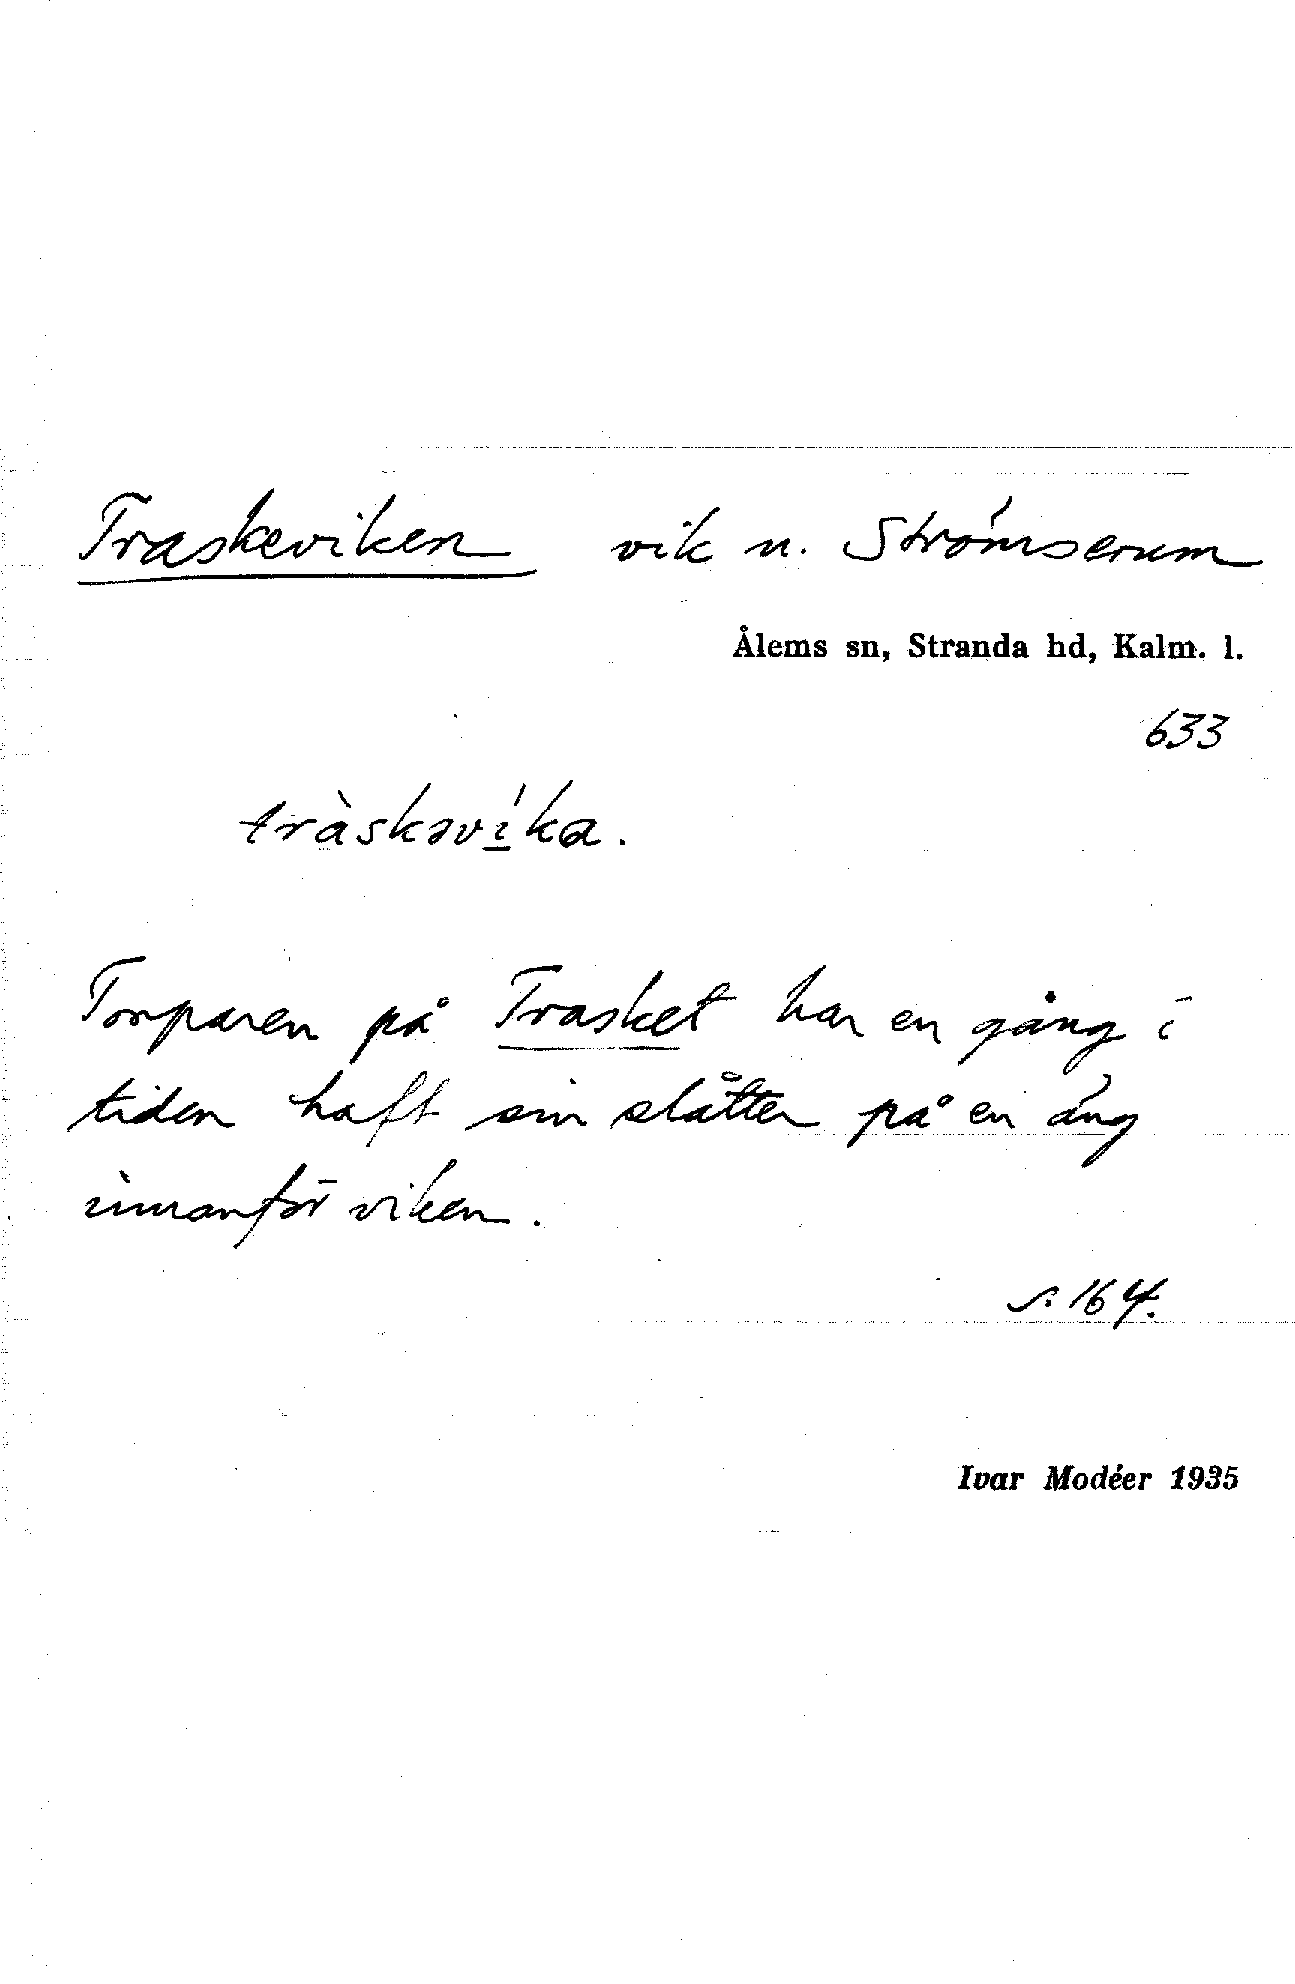 Traskeviken vik n. Strömserum
Ålems sn, Stranda hd, Kalm. l.
633
tràskəví̲ka.
Torparen på Trasket har en gång i
tiden haft sin slåtter på en äng
innanför viken.
s. 164.
Ivar Modéer 1935